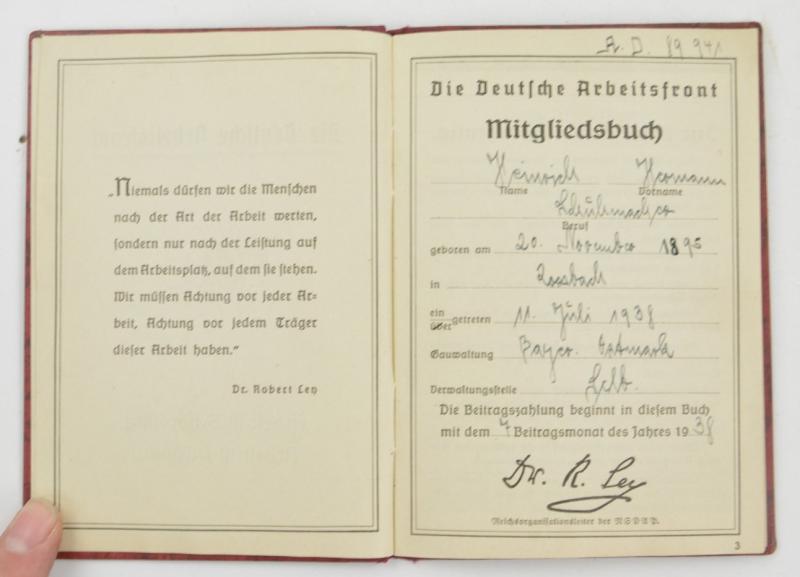 „Niemals dürfen wir die Menschen
nach der Art der Arbeit werten,
sondern nur nach der Leistung auf
dem Arbeitsplatz, auf dem sie stehen.
Wir müssen Achtung vor jeder Ar-
beit, Achtung vor jedem Träger
dieser Arbeit haben.“
Dr. Robert Ley
A. D. 89 941
Die Deutsche Arbeitsfront
Mitgliedsbuch
Heinrich Hermann
Name Vorname
Schuhmacher
Beruf
geboren am 20. November 1895
in Rossbach
ein
über getreten 11. Juli 1938
Gauwaltung Bayer. Ostmark
Verwaltungsstelle Selb.
Die Beitragszahlung beginnt in diesem Buch
mit dem 7 Beitragsmonat des Jahres 1938
Dr. R. Ley
Reichsorganisationsleiter der NSDAP.
3